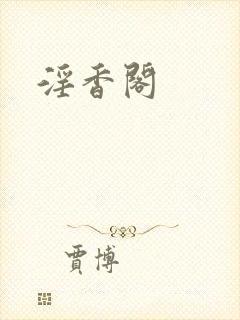 淫香閣
賈博